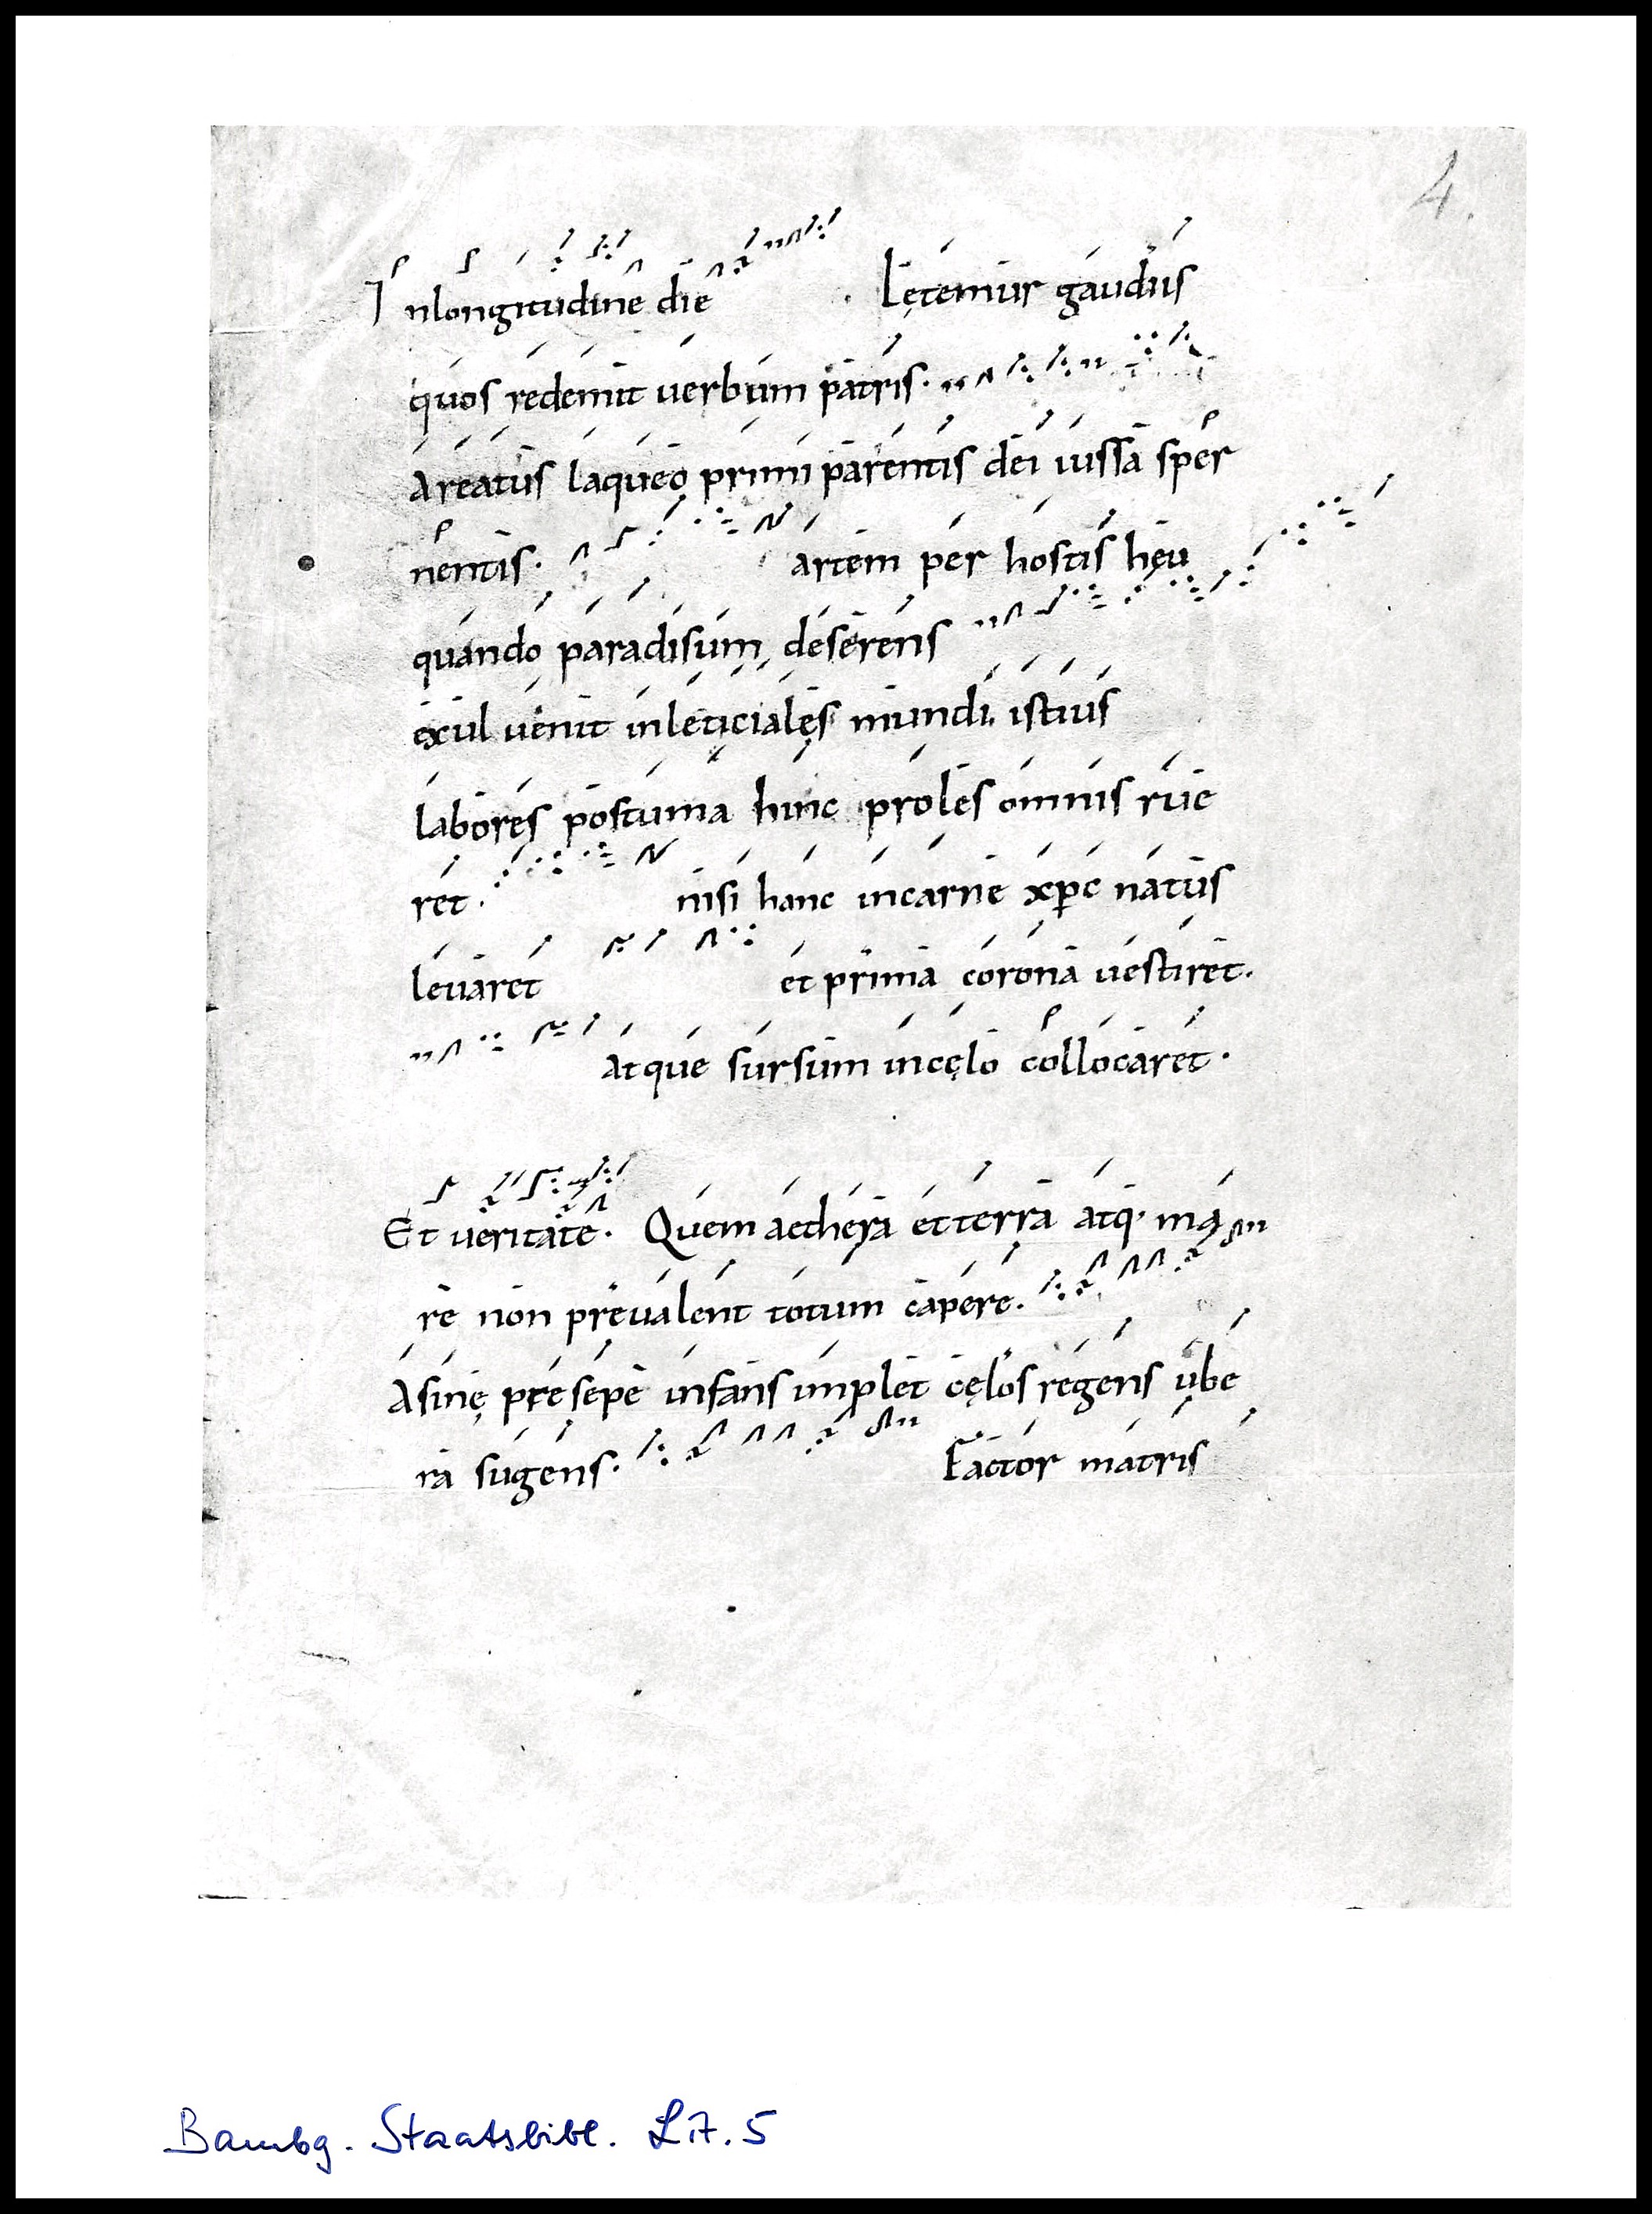 4.
Inlongitudine die . Lętemur gaudiis
quos redemit uerbum patris.
Areatus laqueo primi parentis dei iussa sper
nentis. artem per hostis heu
quando paradisum deserens
exul uenit inleticialęs mundi istius
labores postuma hinc proles omnis rue
ret. nisi hanc incarne xp̄c natus
leuaret et prima corona uestiret.
Atque sursum incęlo collocaret.
Et ueritate. Quem aethera et terra atq· ma
re non preualent totum capere.
Asinę presepe infans implet cęlos regens ube
ra sugens. Factor matris
Bambg. Staatsbibl. Lit. 5